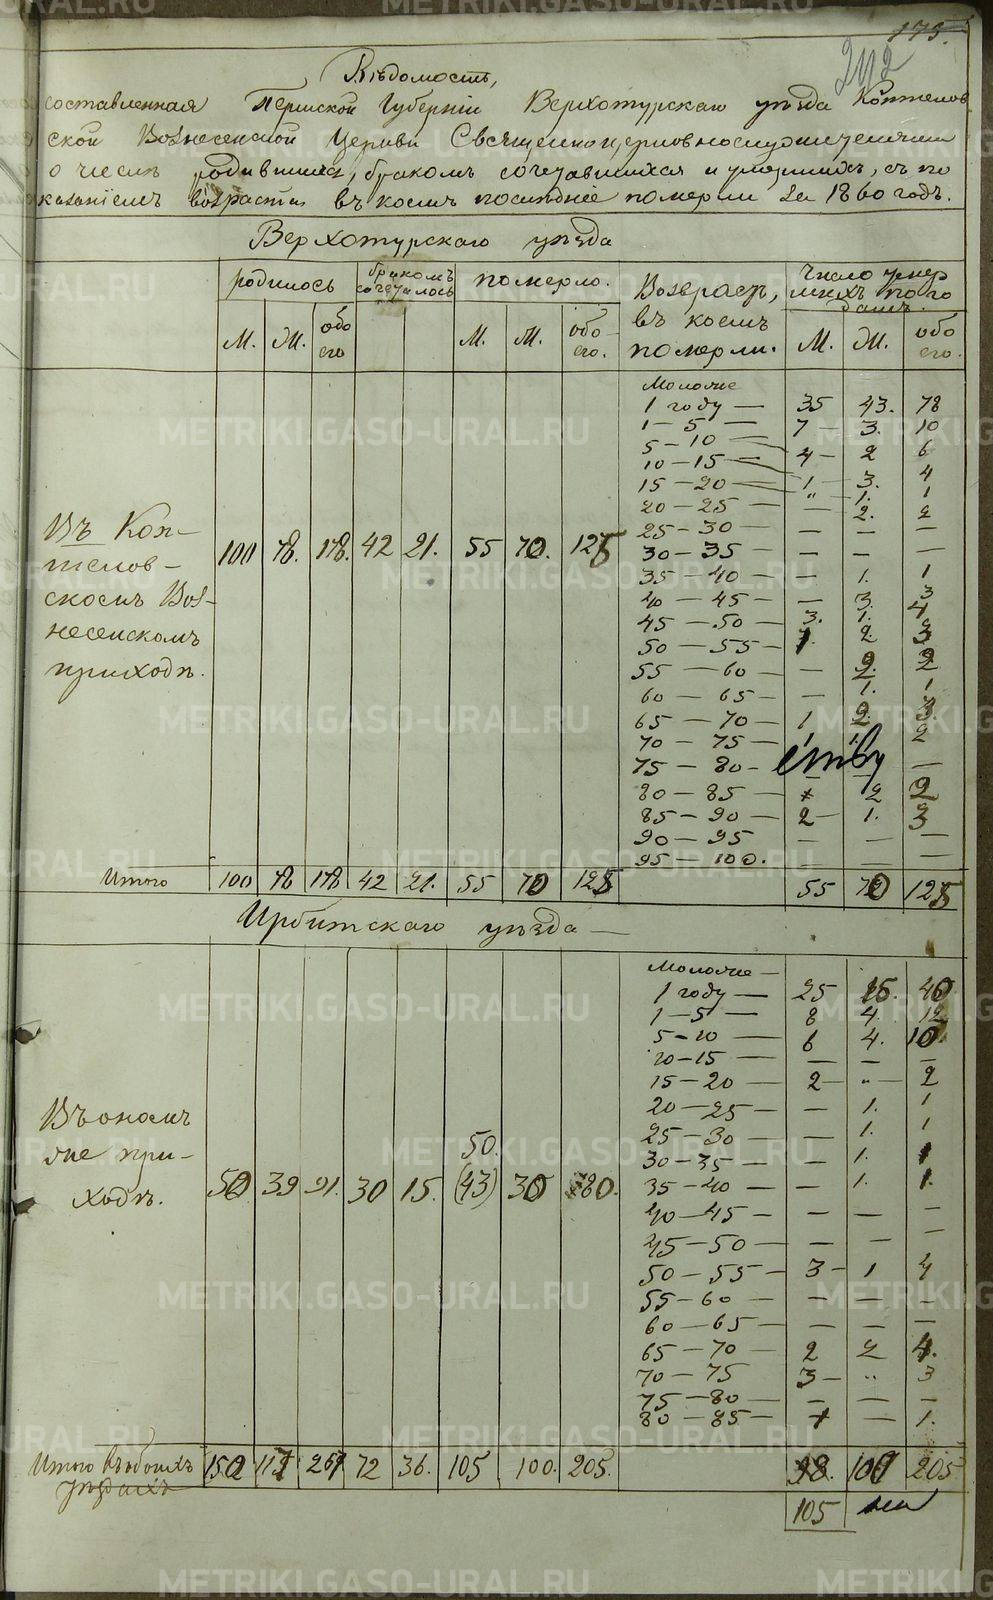 175.
202
Вѣдомость,
составленная Пермской Губернiи Верхотурскаго уѣзда Коптелов
ской Вознесенской Церкви Священноцерковнослужителями
о числѣ родившихся, бракомъ сочетавшихся и умершихъ, съ по
казанiемъ возраста въ коемъ послѣднiе померли за 1860 годъ.
Верхотурскаго уѣзда
родилось бракомъ сочеталось померло. Возрастъ, въ коемъ померли. Число умер шихъ по го дамъ.
М. Ж. обо его М. Ж. обо его. М. Ж. обо его.
Въ Коп-
телов-
скомъ Воз-
несенскомъ
приходѣ.
100 78. 178. 42 21. 55 70. 125
Моложе
1 году — 35 43. 78
1 — 5 — 7 — 3. 10
5 — 10 — 4 — 2 6
10 — 15 — 1 — 3. 4
15 — 20 — „ — 1. 1
20 — 25 — — 2. 2
25 — 30 — — —
30 — 35 — — — —
35 — 40 — — 1. 1
40 — 45 — — 3. 3
45 — 50 — 3. 1. 4
50 — 55 — 1. 2 3
55 — 60 — — 2. 2
60 — 65 — — 1. 1
65 — 70 — 1 2. 3.
70 — 75 — 1 1. 2
75 — 80 — — — —
80 — 85 — 2 2
85 — 90 — 2 — 1. 3
90 — 95 — — —
95 — 100. — — —
Итого 100 78 178 42 21. 55 70 125 55 70 125
Ирбитскаго уѣзда —
Въ ономъ
же при-
ходѣ.
50 39 91. 30 15. 50. (43) 30 80.
Моложе —
1 году — 25 15. 40
1 — 5 — 8 4. 12
5 — 10 — 6 4. 10.
10 — 15 — — — —
15 — 20 — 2 — „ — 2
20 — 25 — — 1. 1
25 — 30 — — 1. 1
30 — 35 — — 1. 1
35 — 40 — — 1. 1.
40 — 45 — — — —
45 — 50 — — — —
50 — 55 — 3 — 1 4
55 — 60 — — — —
60 — 65 — — — —
65 — 70 — 2 2 4.
70 — 75 3 — „ 3
75 — 80 — — — —
80 — 85 — 1 — 1.
Итого въ обоихъ 150 117 267 72 36. 105 100. 205. 98. 100 205
уѣздахъ
105
METRIKI.GASO-URAL.RU